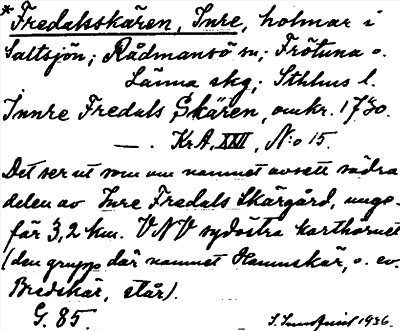 * Fredalsskären, Inre, holmar i
Saltsjön; Rådmansö sn; Frötuna o.
Länna skg; Sthlms l.
Innre Fredals Skären, omkr. 1730.
—. KrA, XXII, N:o 15.
Det ser ut som om namnet avsett södra
delen av Inre Fredals Skärgård, unge-
fär 3,2 km. VNV sydöstra karthörnet
(den grupp där namnet Hamnskär, o. ev.
Bredskär, står).
G. 85.
1936.